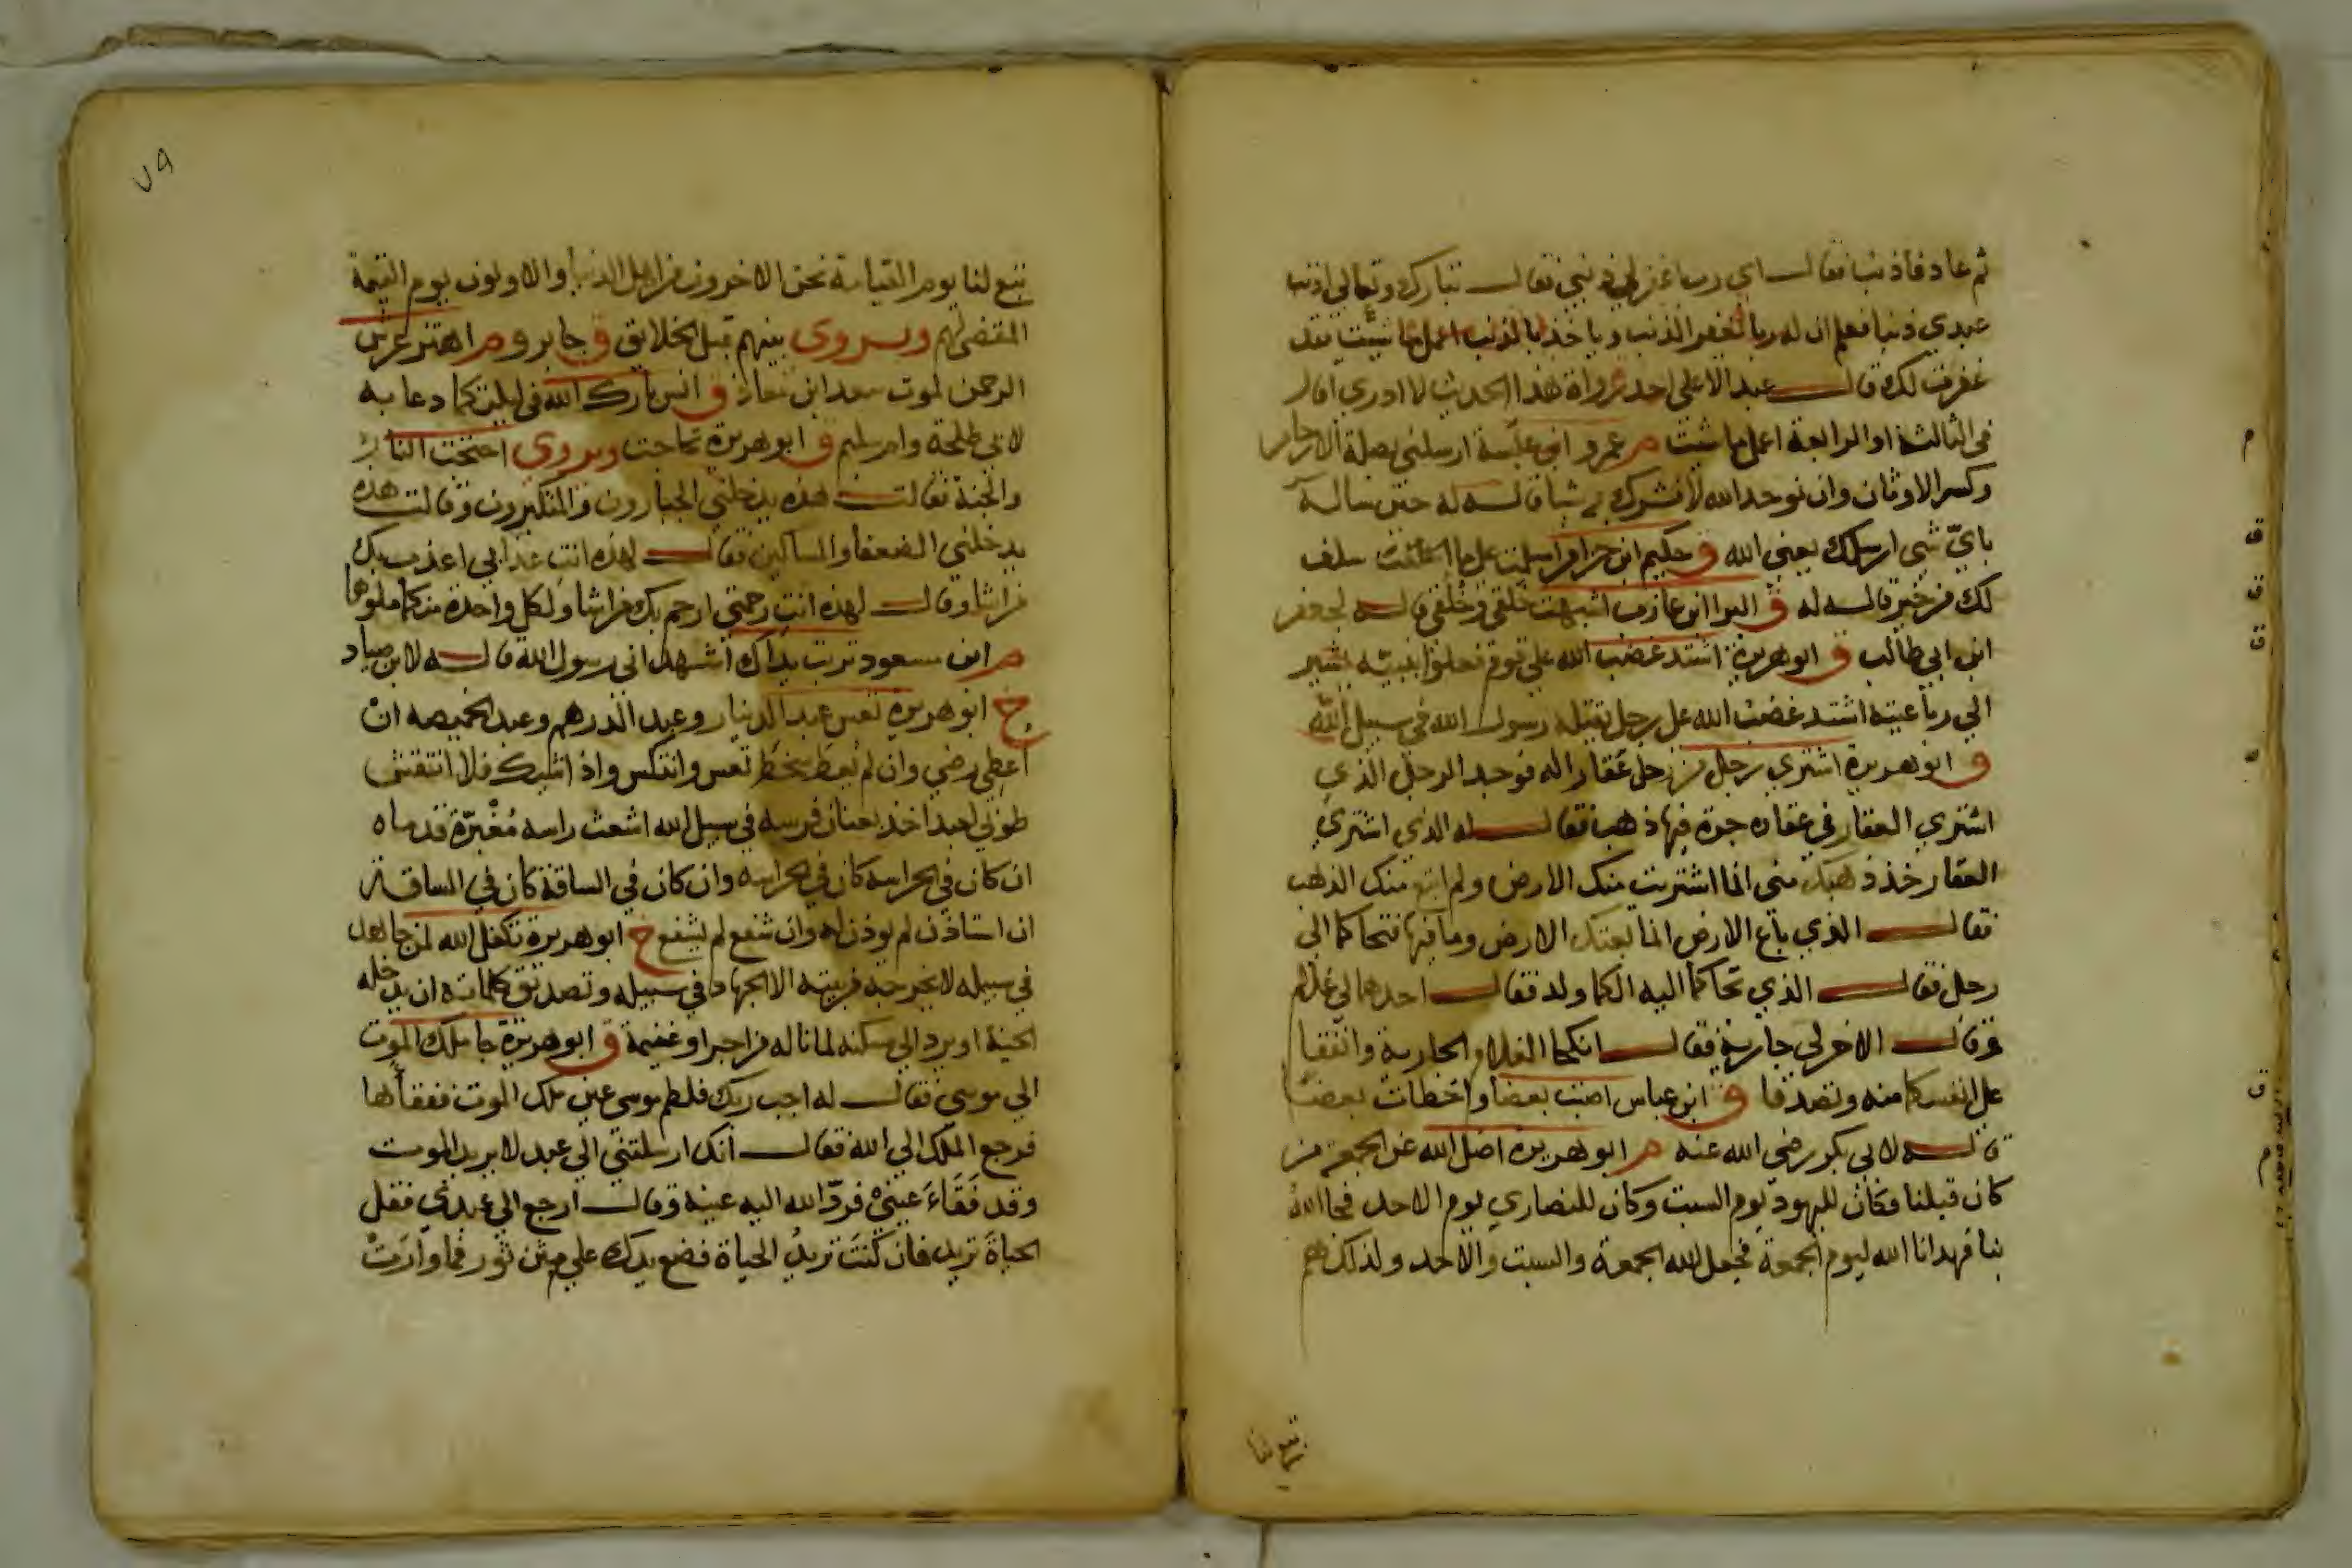 ثم عاد فاذنب فقال اي رب اغفر لي ذنبي فقال تبارك وتعالى اذنب
عبدي ذنبا فعلم ان له ربا يغفر الذنب وياخذ بالذنب اعمل ما شيت فقد
غفرت لك قال عبد الاعلى احد رواة هذا الحديث لا ادري اقال
في الثالثة او الرابعة اعمل ما شئت م عمرو ابن عبسة ارسلني بصلة الارحام
وكسر الاوثان وان يوحد الله لا يشرك به شيا قاله له حين ساله
باي شي ارسلك يعني الله ق حكيم ابن حزام اسلمت على ما سلف
لك من خير قاله له ق البرا ابن عازب اشبهت خلقي وخلقي قاله لجعفر
ابن ابي طالب ق ابو هريرة اشتد غضب الله على قوم فعلوا بنبيه يشير
الي رباعيته اشتد غضب الله على رجل يقتله رسول الله في سبيل الله
ق ابو هريرة اشتري رجل من رجل عقارا له فوجد الرجل الذي
اشتري العقار في عقاره جرة فيها ذهب فقال له الذي اشتري
العقار خذ ذهبك مني انما اشتريت منك الارض ولم ابتع منك الذهب
فقال الذي باع الارض انما بعتك الارض وما فيها فتحاكما الي
رجل فقال الذي تحاكما اليه الكما ولد فقال احدهما لي غلام
وقال الاخر لي جارية فقال انكحا الغلام الجارية وانفقا
على انفسكما منه وتصدقا ق ابن عباس اصبت بعضا واخطات بعضا
قاله لابي بكر رضي الله عنه م ابو هريرة اضل الله عن الجمعة من
كان قبلنا فكان لليهود يوم السبت وكان للنصاري يوم الاحد فجا الله
بنا فهدانا الله ليوم الجمعة فجعل الله الجمعة والسبت والاحد ولذلك هم
تبع لنا
٧٩
تبع لنا يوم القيامة نحن الاخرون من اهل الدنيا والاولون يوم القيمة
المقضي لهم ويروى بينهم قبل الخلايق ق جابر وم اهتز عرش
الرحمن لموت سعد ابن معاذ ق انس بارك الله في ليلتكما دعا به
لابي طلحة وام سليم ق ابو هريرة تحاجت ويروى احتجت النار
والجنة فقالت هذه يدخلني الجبارون والمتكبرون وقالت هذه
يدخلني الضعفا والمساكين فقال لهذه انت عذابي اعذب بك
من اشا وقال لهذه انت رحمتي ارحم بك من اشا ولكل واحدة منكما ملوها
م ابن مسعود تربت يداك اشهد اني رسول الله قاله لابن صياد
خ ابو هريرة تعس عبد الدينار وعبد الدرهم وعبد الخميصه ان
اعطي رضي وان لم يعط سخط تعس وانتكس واذا شيك فلا انتقش
طوبي لعبد اخذ بعنان فرسه في سبيل الله اشعث راسه مغبرة قدماه
ان كان في الحراسه كان في الحراسه وان كان في الساقة كان في الساقة
ان استاذن لم يوذن له وان شفع لم يشفع خ ابو هريرة تكفل الله لمن جاهد
في سبيله لا يخرجه من بيته الا الجهاد في سبيله وتصديق كلماته ان يدخله
الجنة او يرده الي مسكنه بما ناله من اجر او غنيمة ق ابو هريرة جا ملك الموت
الي موسي فقال له اجب ربك فلطم موسي عين ملك الموت ففقأها
فرجع الملك الي الله فقال انك ارسلتني الي عبد لا يريد الموت
وقد فقاء عيني فرد الله اليه عينه وقال ارجع الي عبدي فقل
الحياة تريد فان كنت تريد الحياة فضع يدك علي متن ثور فما وارت